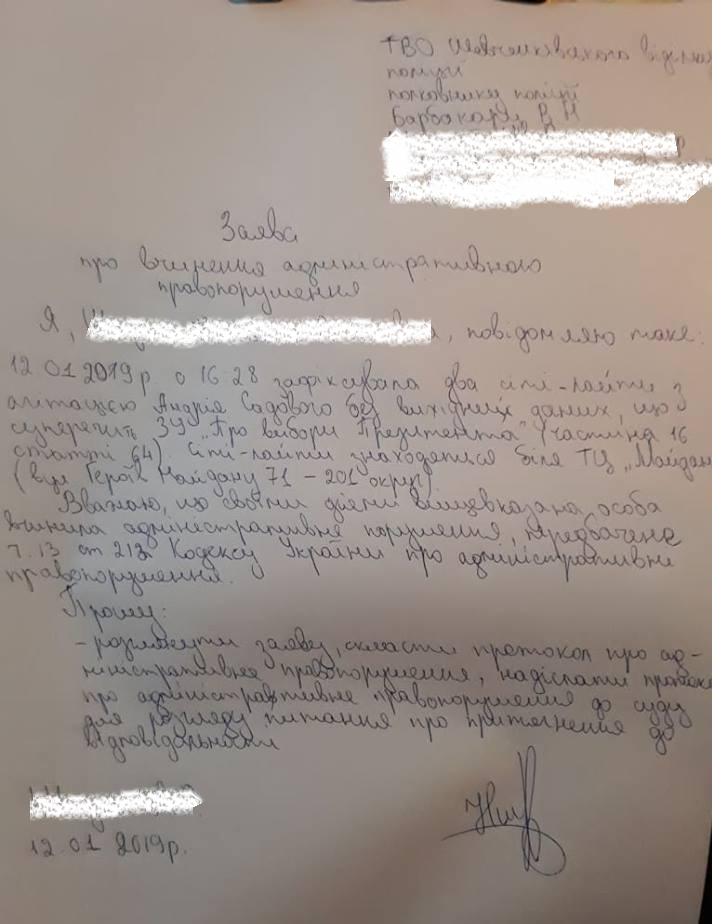 ТВО Шевченківського відділу
поліції
полковнику поліції
Барбакару Р Н
Заява
про вчинення адміністративного
правопорушення
Я, , повідомляю таке:
12 01 2019 р о 16 28 зафіксувала два сіті-лайти з
агітацією Андрія Садового без вихідних даних, що
суперечить ЗУ "Про вибори Президента" (частина 16
статті 64). Сіті-лайти знаходяться біля ТЦ "Майдан"
(вул Героїв Майдану 71 – 201 округ)
Вважаю, що своїми діями вищевказана особа
вчинила адміністративне порушення, передбачене
ст Кодексу України про адміністративні
правопорушення.
Прошу:
- розглянути заяву, скласти протокол про ад-
міністративне правопорушення, надіслати протокол
про адміністративне правопорушення до суду
для розгляду питання про притягнення до
відповідальности
12.01 2019р.